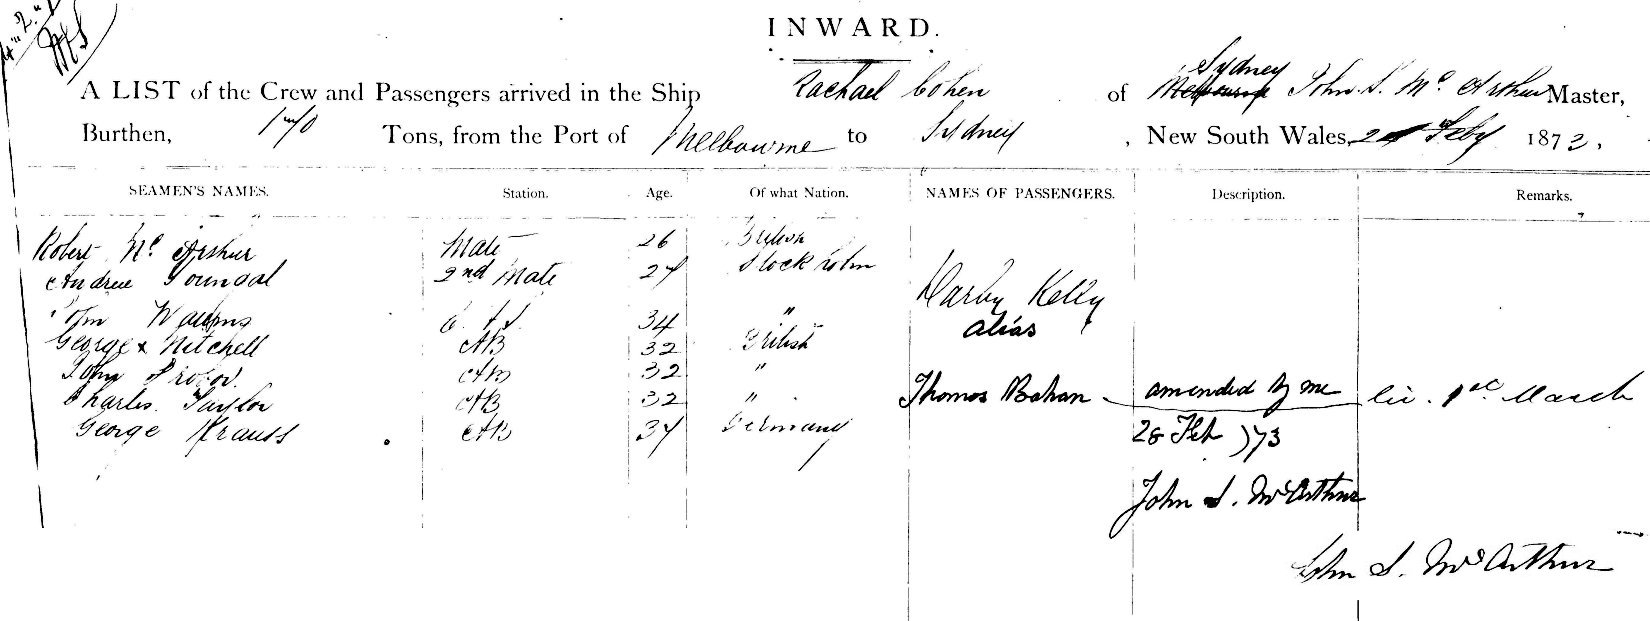 INWARD.
A LIST of the Crew and Passengers arrived in the Ship Rachael Cohen of Melbourne Sydney John S. Mc Arthur Master,
Burthen, 170 Tons, from the Port of Melbourne to Sydney, New South Wales, Feby 1873.
SEAMEN'S NAMES. Station. Age. Of what Nation. NAMES OF PASSENGERS. Description. Remarks.
Robert Mc Arthur Mate 26 British
Andrew 2nd Mate 24 Stockholm
Darby Kelly
John 34 "
alias
George Mitchell AB 32 British
John AB 32 "
Charles Taylor AB 32 " Thomas Bahan amended by me 1st March
George Krauss AB 34 Germany 28 Feb /73
John S. McArthur
John S. McArthur